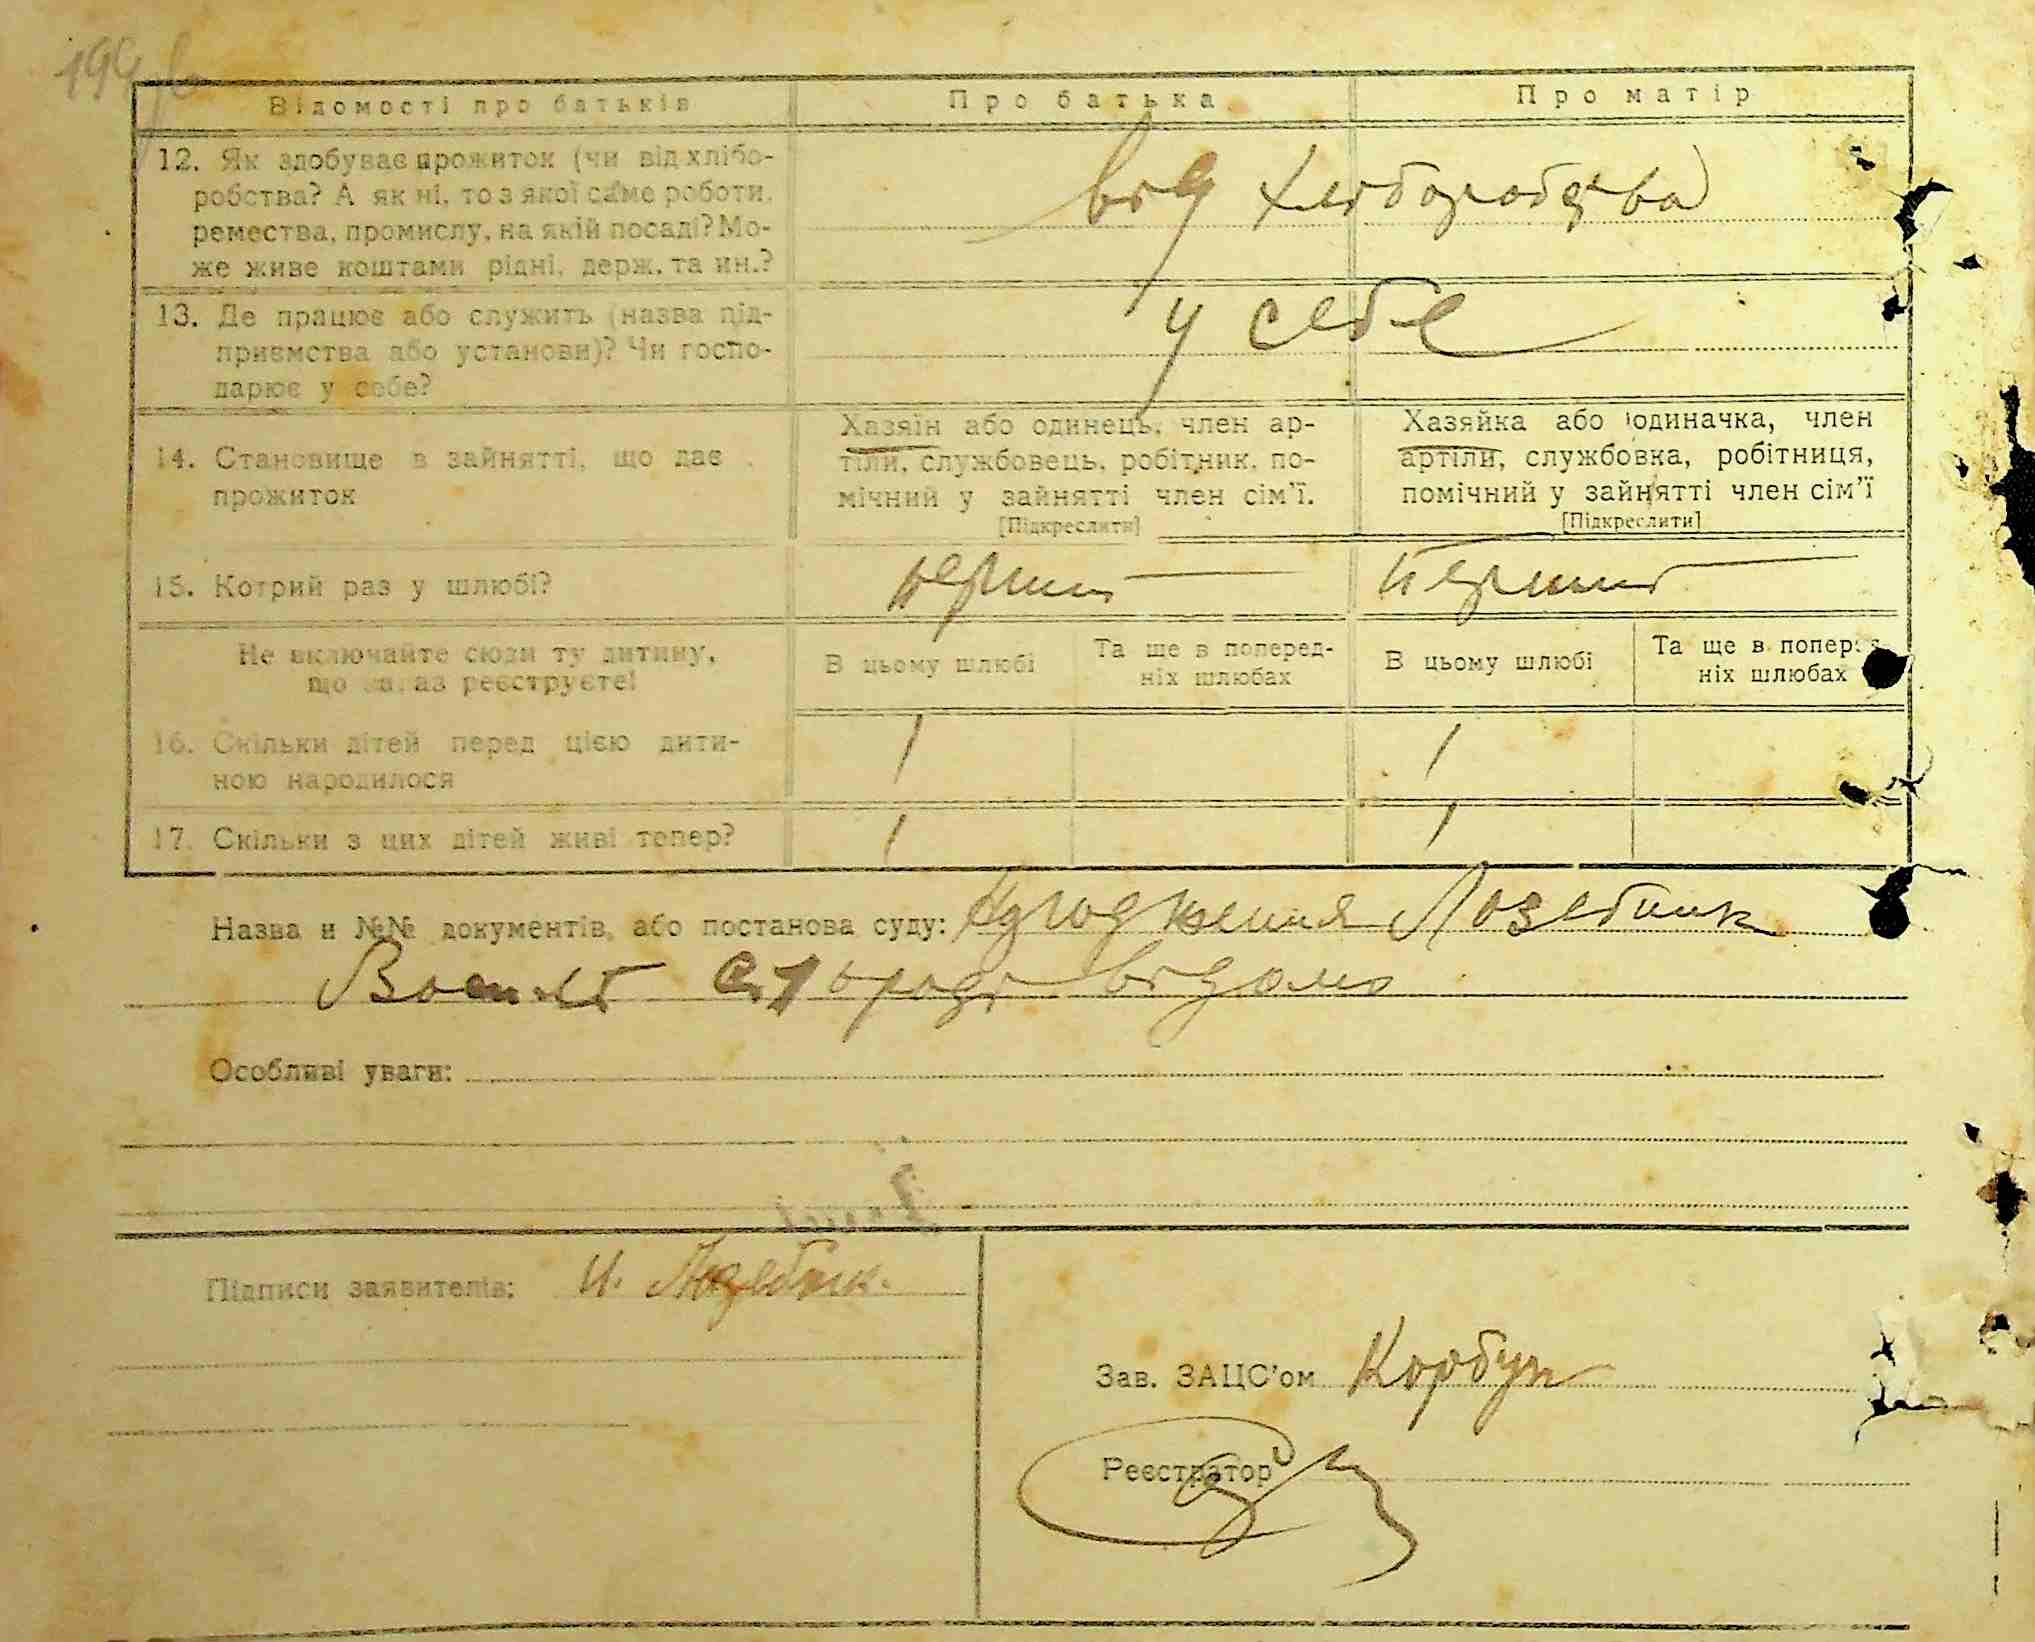 Відомості про батьків
Про батька
Про матір
12. Як здобуває прожиток (чи від хлібо-
робства? А як ні, то з якої саме роботи,
ремества, промислу, на якій посаді? Мо-
же живе коштами рідні, держ. та ин.?
від хліборобства
13. Де працює або служить (назва під-
приємства або установи)? Чи госпо-
дарює у себе?
у себе
14. Становище в зайнятті, що дає
прожиток
Хазяїн або одинець, член ар-
тіли, службовець, робітник, по-
мічний у зайнятті член сім'ї.
[Підкреслити]
Хазяйка або одиначка, член
артіли, службовка, робітниця,
помічний у зайнятті член сім'ї
[Підкреслити]
15. Котрий раз у шлюбі?
перший
перший
Не включайте сюди ту дитину,
що зараз реєструєте!
В цьому шлюбі
Та ще в поперед-
ніх шлюбах
В цьому шлюбі
Та ще в поперед-
ніх шлюбах
16. Скільки дітей перед цією дити-
ною народилося
1
1
17. Скільки з цих дітей живі тепер?
1
1
Назва и №№ документів, або постанова суду: Лозебник
відомо
Особливі уваги:
Підписи заявителів: И. Лозебник.
Зав. ЗАЦС'ом Корбун
Реєстратор